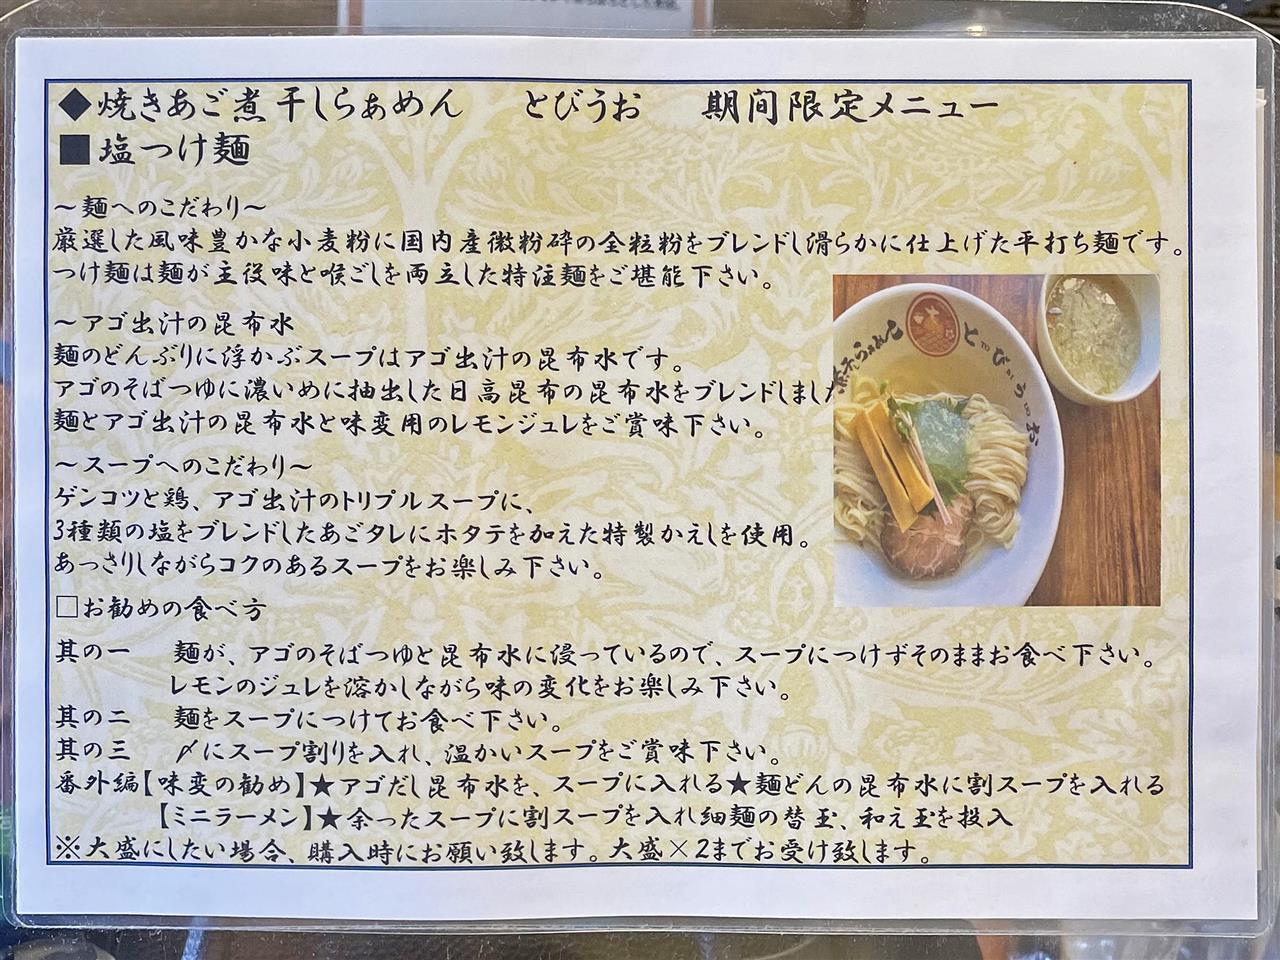 ◆焼きあご煮干しらぁめん とびうお 期間限定メニュー
■塩つけ麺
～麺へのこだわり～
厳選した風味豊かな小麦粉に国内産微粉砕の全粒粉をブレンドし滑らかに仕上げた平打ち麺です。
つけ麺は麺が主役味と喉ごしを両立した特注麺をご堪能下さい。
～アゴ出汁の昆布水
麺のどんぶりに浮かぶスープはアゴ出汁の昆布水です。
アゴのそばつゆに濃いめに抽出した日高昆布の昆布水をブレンドしました
麺とアゴ出汁の昆布水と味変用のレモンジュレをご賞味下さい。
～スープへのこだわり～
ゲンコツと鶏、アゴ出汁のトリプルスープに、
3種類の塩をブレンドしたあごタレにホタテを加えた特製かえしを使用。
あっさりしながらコクのあるスープをお楽しみ下さい。
□お勧めの食べ方
其の一 麺が、アゴのそばつゆと昆布水に浸っているので、スープにつけずそのままお食べ下さい。
レモンのジュレを溶かしながら味の変化をお楽しみ下さい。
其の二 麺をスープにつけてお食べ下さい。
其の三 〆にスープ割りを入れ、温かいスープをご賞味下さい。
番外編【味変の勧め】★アゴだし昆布水を、スープに入れる★麺どんの昆布水に割スープを入れる
【ミニラーメン】★余ったスープに割スープを入れ細麺の替玉、和え玉を投入
※大盛にしたい場合、購入時にお願い致します。大盛×2までお受け致します。
らぁめん とびうお